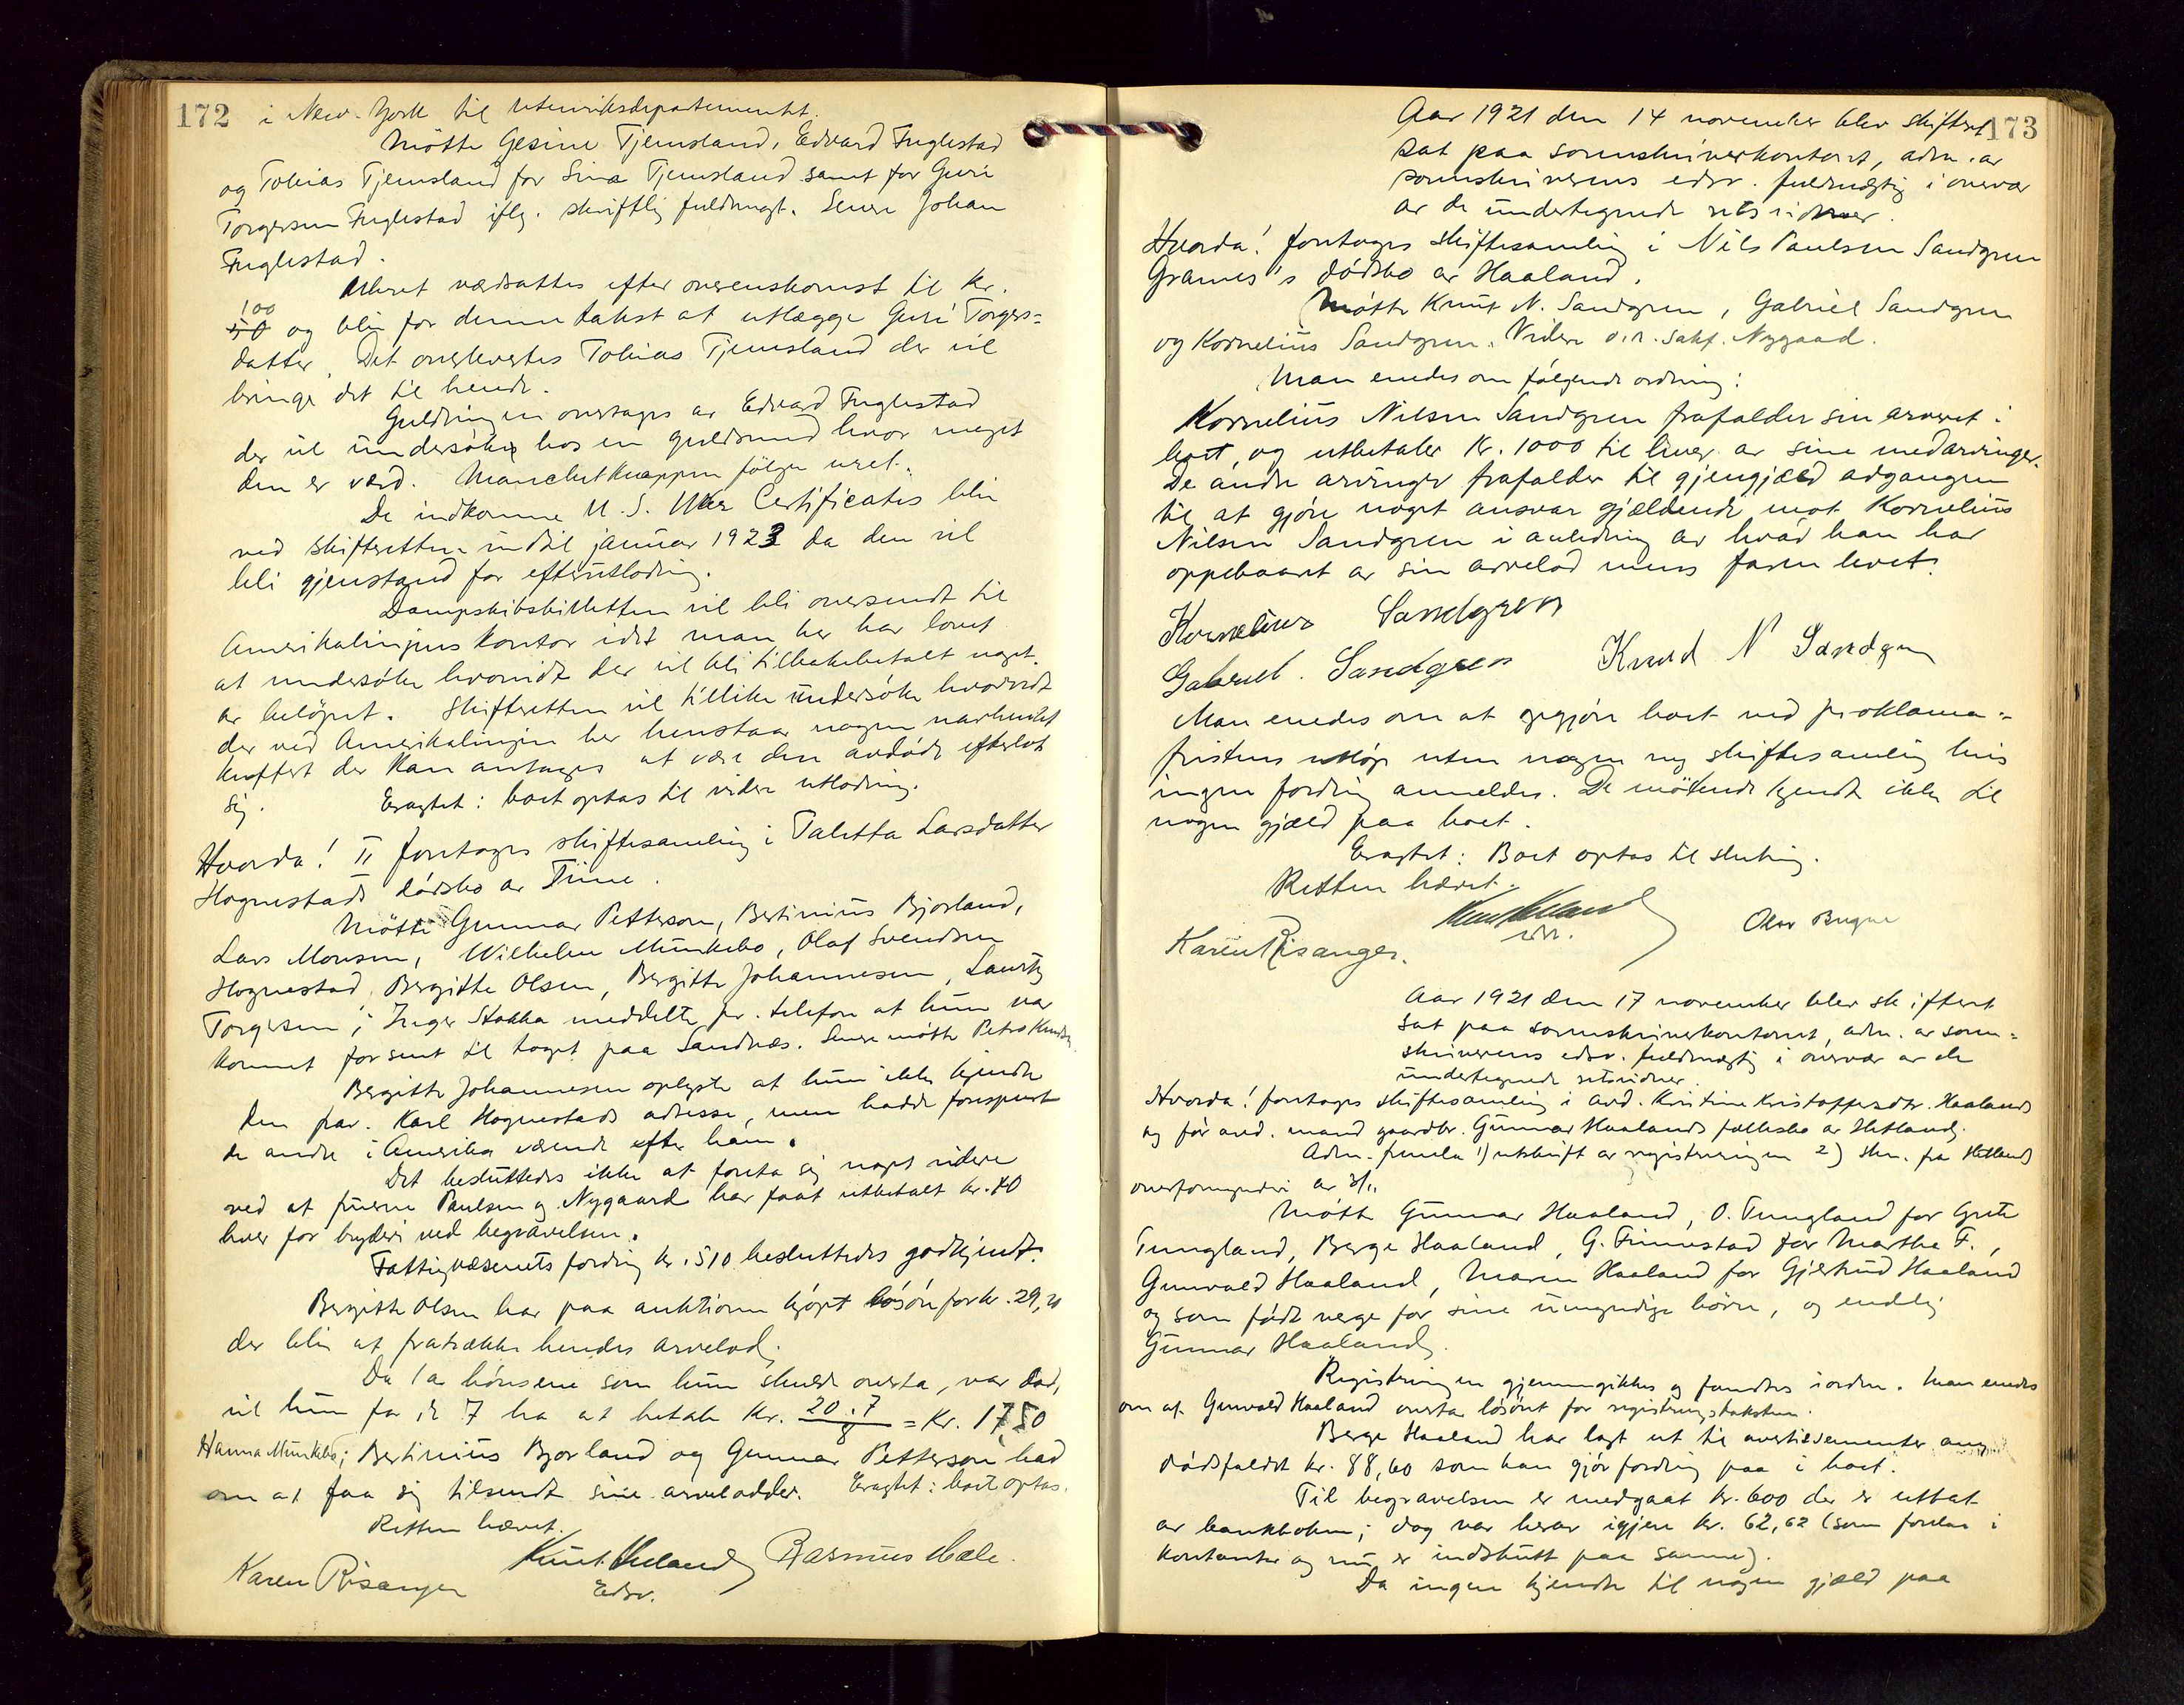 172
i New-York til utenriksdepartementet.
Mötte Gesine Tjemsland, Edvard Fuglestad
og Tobias Tjemsland for Sina Tjemsland samt for Guri
Torgersen Fuglestad iflg. skriftlig fuldmagt. Senere Johan
Fuglestad.
Uhret værdsattes efter overenskomst til kr.
100
50 og blir for denne takst at utlægge Guri Torgers=
datter. Det overlevertes Tobias Tjemsland der vil
bringe det til hende.
Guldringen overtages av Edvard Fuglestad
der vil undersöke hos en guldsmed hvor meget
den er værd. Manchetknappen fölger uret.
De indkomne U.S. War Certificates blir
ved skifteretten indtil januar 1923 da den vil
bli gjenstand for efterutlodning.
Dampskibsbilletten vil bli oversendt til
Amerikalinjens kontor idet man her har lovet
at undersöke hvorvidt der vil bli tilbakebetalt noget
av belöpet. Skifteretten vil tillike undersöke hvorvidt
der ved Amerikalinjen her henstaar nogen uavhentet
kuffert der kan antages at være den avdöde efterlot
sig. Eragtet: boet optas til videre utlodning.
Hvorda! II foretoges skiftesamling i Taletta Larsdatter
Hognestads dödsbo av Time.
Mötte Gunnar Petterson, Bertinius Bjorland,
Lars Monsen, Wilhelm Munkebo, Olaf Svendsen
Hognestad, Bergitte Olsen, Bergitte Johannesen, Lauritz
Torgersen; Inger Stokka meddelte pr. telefon at hun var
kommet for sent til toget paa Sandnæs. Senere mötte Petra Knudsen.
Bergitte Johannesen oplyste at hun ikke kjendte
den frav. Karl Hognestads adresse, men hadde forespurt
de andre i Amerika værende efter ham.
Det besluttedes ikke at foreta sig noget videre
ved at fruerne Paulsen og Nygaard har faat utbetalt kr. 40
hver for bryderi ved begravelsen.
Fattigvæsenets fordring kr. 510 besluttedes godkjendt.
Bergitte Olsen har paa auktionen kjöpt lösöre for kr. 29,20
der blir at fratrække hendes arvelod.
Da 1 av hönsene som hun skulde overta, var död,
vil hun for de 7 ha at betale kr. 20.7/8 = kr. 17,50
Hanna Munkebo; Bertinius Bjorland og Gunnar Petterson bad
om at faa sig tilsendt sine arvelodder. Eragtet: boet optas.
Retten hævet.
Knut Heland Rasmus Hæle.
Karen Risanger Edsv.
173
Aar 1921 den 14 november blev skifteret
sat paa sorenskriverkontoret, adm. av
sorenskriverens edsv. fuldmægtig i overvær
av de undertegnede retsvidner.
Hvorda! foretoges skiftesamling i Nils Paulsen Sandgren
Grames's dödsbo av Haaland.
Mötte Knut N. Sandgren, Gabriel Sandgren
og Kornelius Sandgren. Videre o.r. sakf. Nygaard.
Man enedes om fölgende ordning:
Kornelius Nilsen Sandgren frafalder sin arveret i
boet, og utbetaler kr. 1000 til hver av sine medarvinger.
De andre arvinger frafalder til gjengjæld adgangen
til at gjöre noget ansvar gjældende mot Kornelius
Nilsen Sandgren i anledning av hvad han har
oppebaaret av sin arvelod mens faren levet.
Kornelius Sandgren
Gabriel Sandgren Knud N Sandgren
Man enedes om at opgjöre boet ved proklama=
fristens utlöp uten nogen ny skiftesamling hvis
ingen fordring anmeldes. De mötende kjendte ikke til
nogen gjæld paa boet.
Eragtet: Boet optas til slutning.
Retten hævet.
Knut Heland
edsv. Olav Brynе
Karen Risanger.
Aar 1921 den 17 november blev skifteret
sat paa sorenskriverkontoret, adm. av soren=
skriverens edsv. fuldmægtig i overvær av de
undertegnede retsvidner.
Hvorda! foretoges skiftesamling i avd. Kristine Kristoffersdtr. Haalands
og för avd. mand gaardbr. Gunnar Haalands fællesbo av Hetland.
Adm. fremla 1) utskrift av registreringen 2) skr. fra Hetland
overformynderi av 3/11
Mötte Gunnar Haaland, O. Tungland for Grete
Tungland, Berge Haaland, G. Finnestad for Marthe F.,
Gunvald Haaland, Maren Haaland for Gjertrud Haaland
og som födt verge for sine umyndige börn, og endelig
Gunnar Haaland.
Registringen gjennemgikkes og fandtes i orden. Man enedes
om at Gunvald Haaland overtar lösöret for registreringstaksten.
Berge Haaland har lagt ut til avertissementer ang.
dödsfaldet kr. 88,60 som han gjör fordring paa i boet.
Til begravelsen er medgaat kr. 600 der er uttat
av bankboken; dog var herav igjen kr. 62,62 (som forelaa i
kontanter og nu er indskutt paa samme).
Da ingen kjendte til nogen gjæld paa